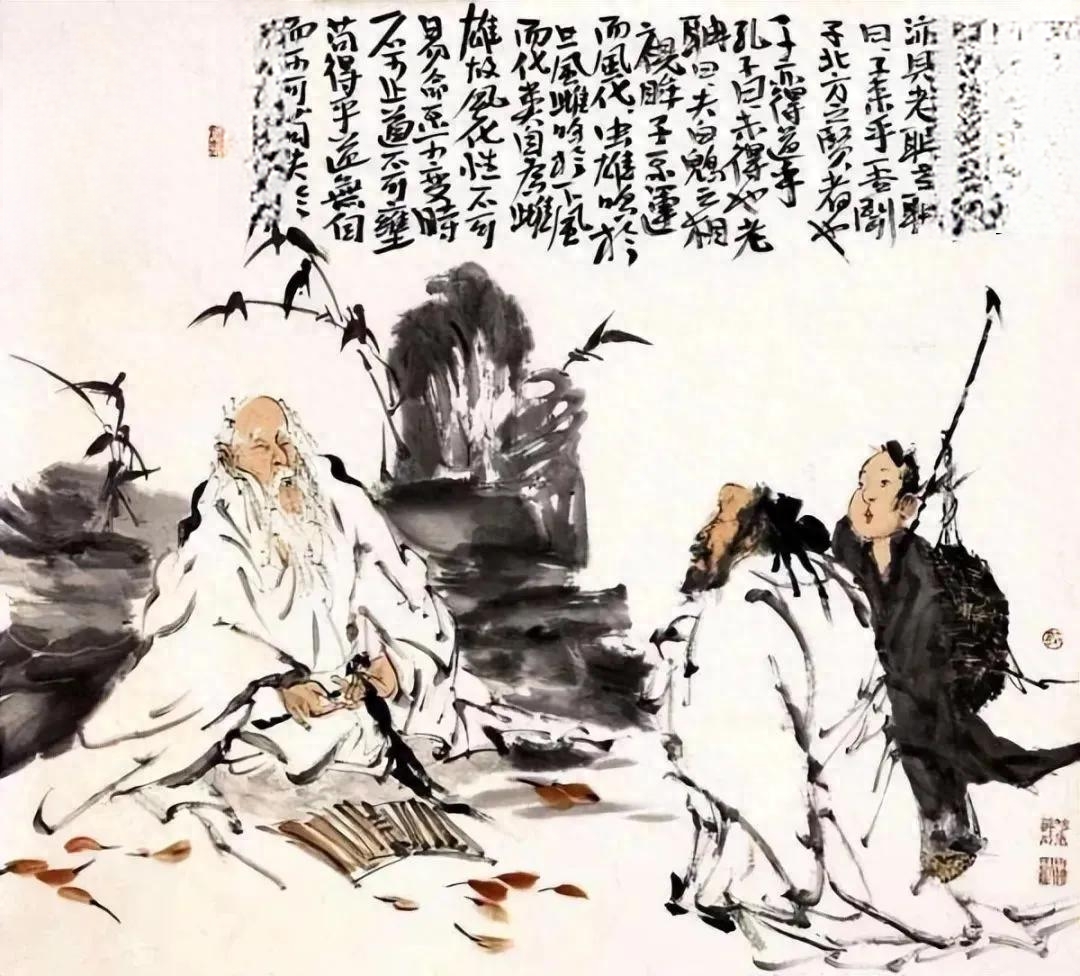 沛見老耼老耼
曰子来乎吾聞
子北方之賢者也
子亦得道乎
孔子曰未得也老
聃曰夫白鶂之相
視眸子不運
而風化虫雄鳴於
上風雌鳴於下風
而化类自為雌
雄故風化性不可
易命不可變時
不可止道不可壅
苟得乎道無自
而不可